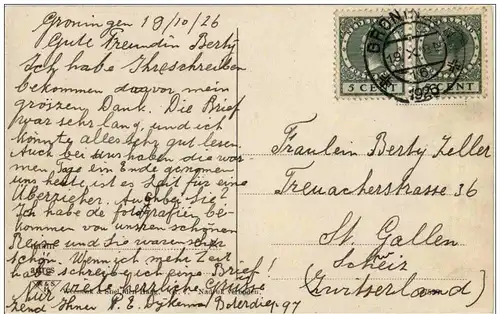 Groningen 18/10/26
Gute Freundin Berty
Ich habe Ihr schreiben
bekommen dafor mein
grözen Dank. Die Brief
war sehr lang, und ich
könnte alles sehr gut lesen.
Auch bei uns haben die war
men Tage ein Ende genomen
uns heute, ist es Zeit für eine
Uberzieher. Auch bei Sie?
Ich habe de fotografien be-
kommen von unsren schönen
Reise und Sie waren sehr
schön. Wenn ich mehr Zeit
habe schreib ich eine Brief!
für viele herrliche Grüsse
send Ihner P. E. Dijkema Boterdiep 97
GRONINGEN
18.X
1926
5 CENT
CENT
Fraulein Berty Zeller
Treuacherstrasse 36
St. Gallen
Schweiz
(Zwitserland)